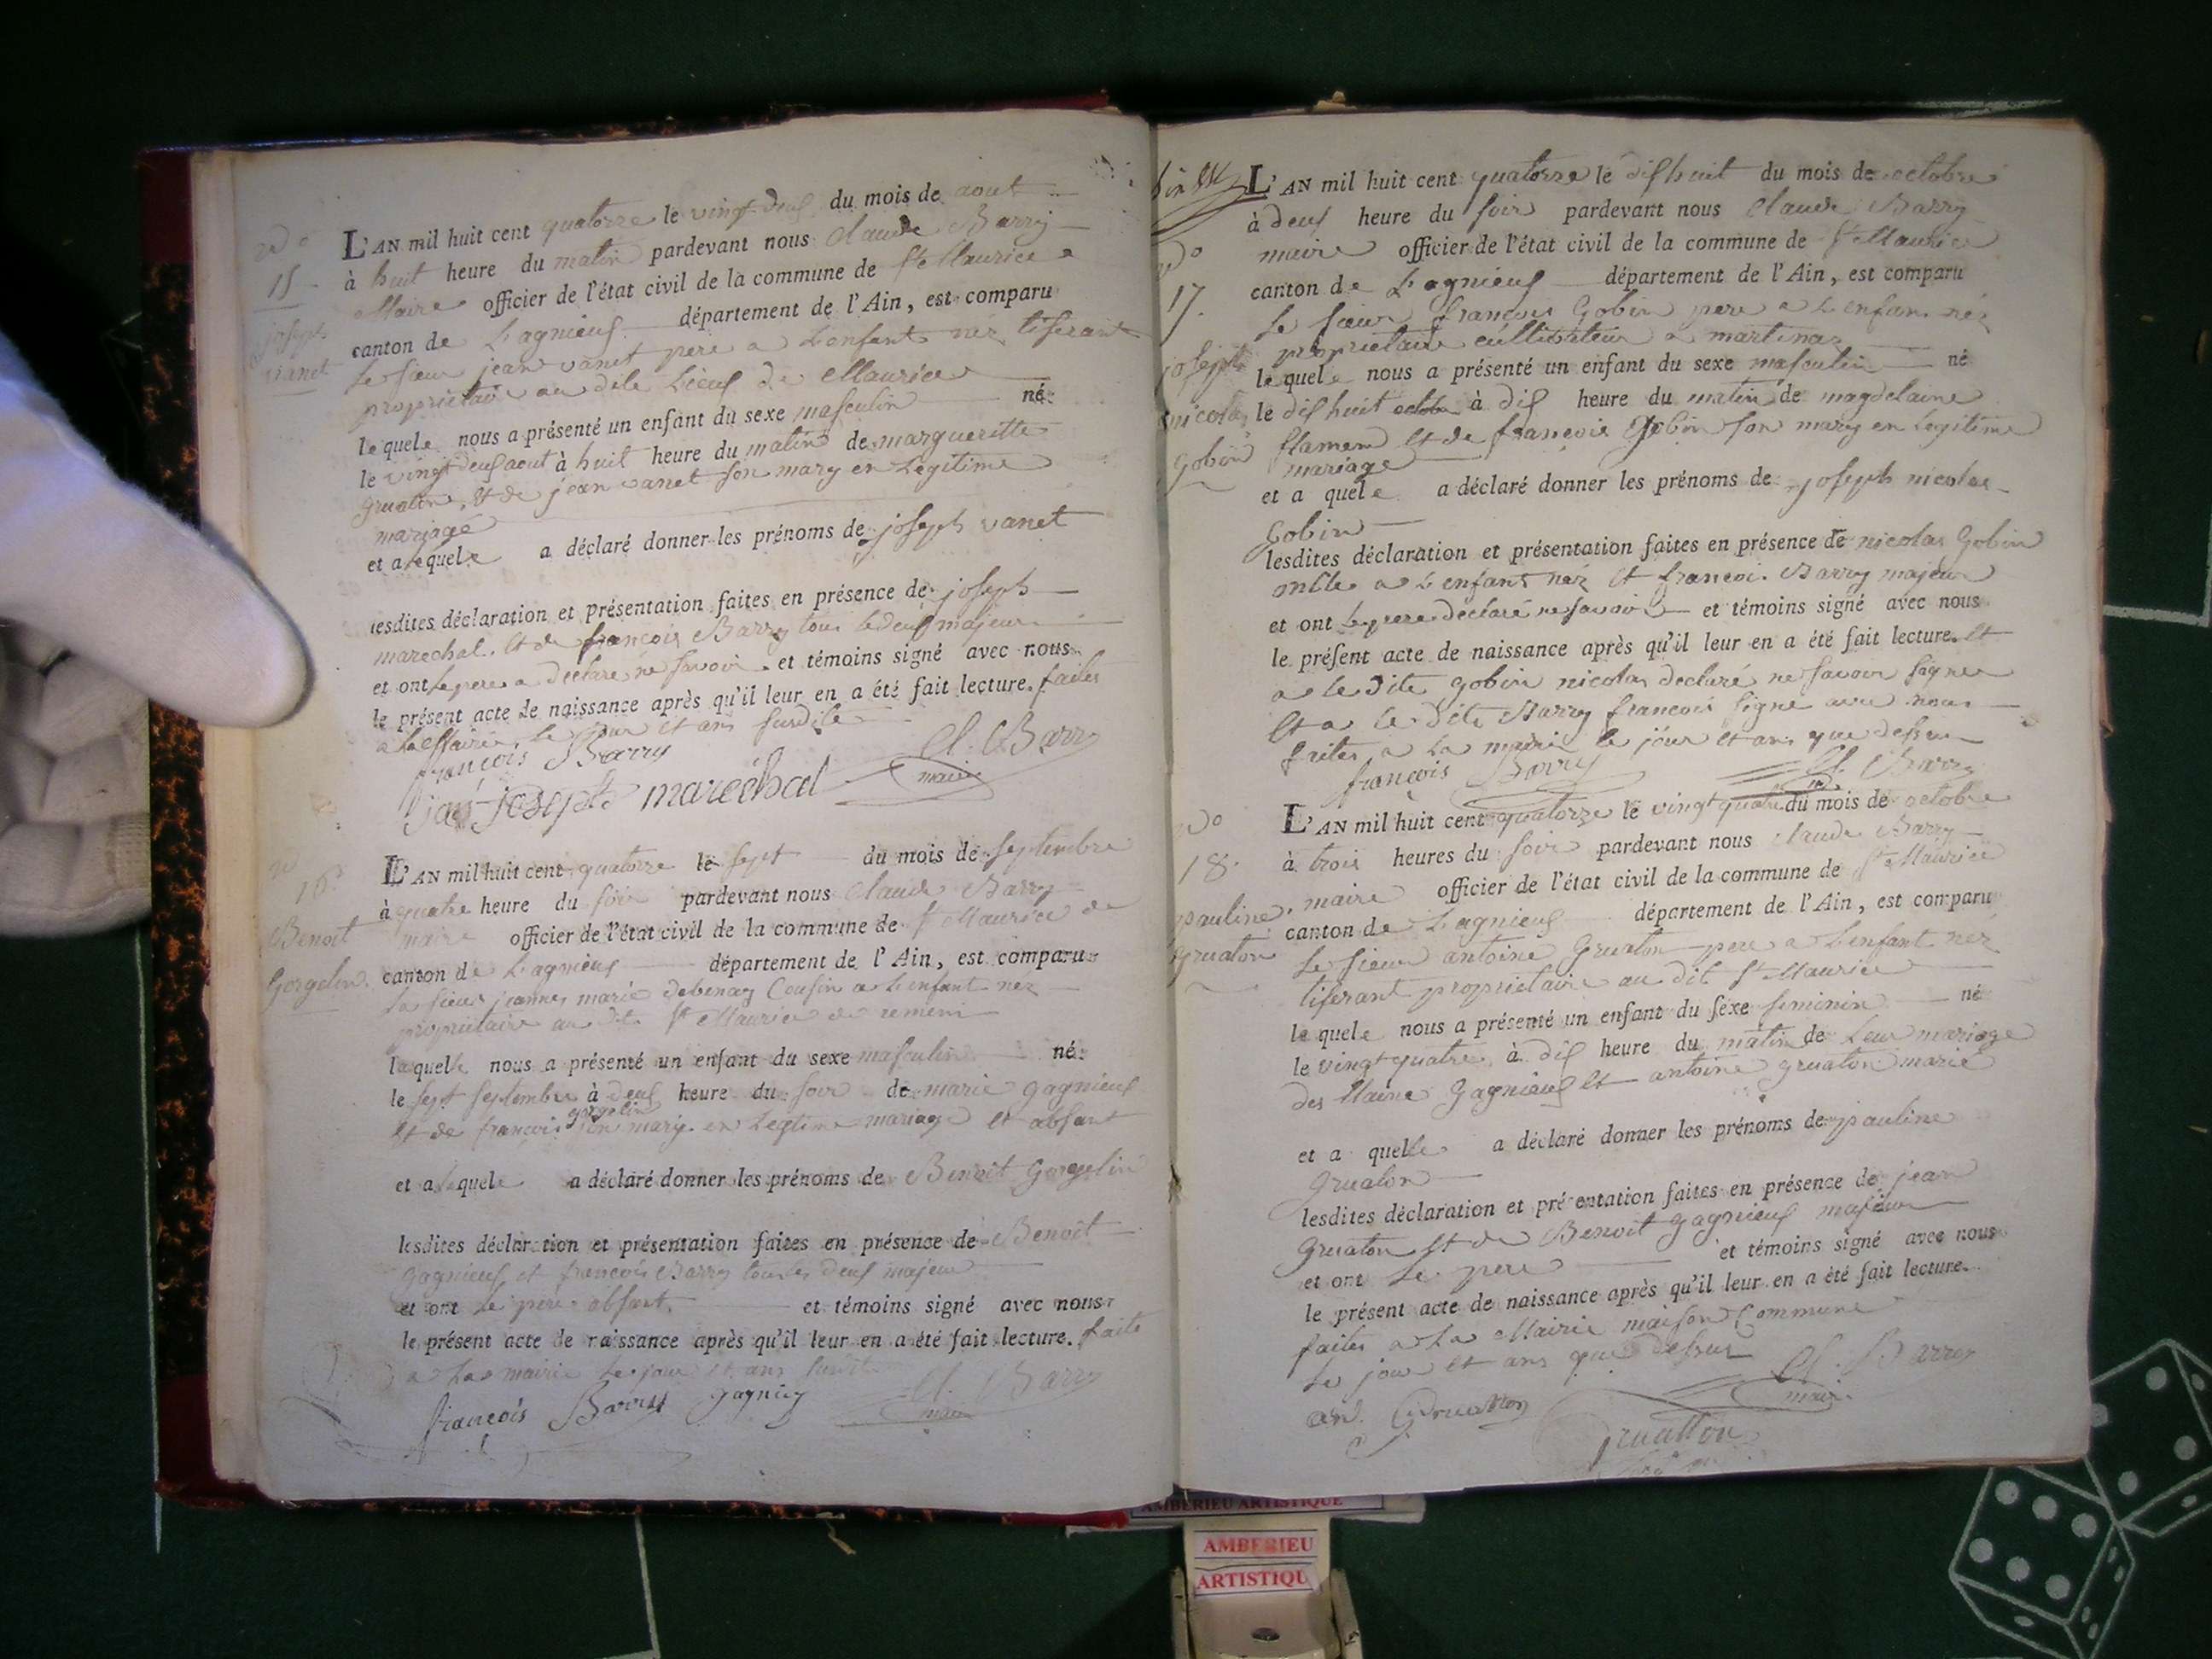 N°
15
joseph
vanet
L'AN mil huit cent quatorze le vingt deux du mois de aout
à huit heure du matin pardevant nous Claude Barry
Maire officier de l'état civil de la commune de St Maurice
canton de Lagnieux département de l'Ain, est comparu
le sieur jean vanet pere a lenfant nez tiserant
proprietaire au dele Lieux de Maurice
lequele nous a présenté un enfant du sexe masculin né
le vingt deux aout à huit heure du matin de margueritte
gruaton, et de jean vanet son mary en legitime
mariage
et alequele a déclaré donner les prénoms de joseph vanet
lesdites déclaration et présentation faites en présence de joseph
marechal et de françois Barry tous ledeux majeur
et ont le pere a declaré ne savoir et témoins signé avec nous
le présent acte de naissance après qu'il leur en a été fait lecture. faites
a la Mairie, le jour et ans surdite
françois Barry Cl. Barry
maire
jan-joseph marechal
N°
16
Benoit
Gorgelin
L'AN mil huit cent quatorze le sept du mois de septembre
à quatre heure du soir pardevant nous Claude Barry
maire officier de l'état civil de la commune de St Maurice de
canton de Lagnieux département de l'Ain, est comparu
le sieur jeannes marie debenay Cousin a lenfant nez
proprietaire au dit St Maurice de remeni
laquelle nous a présenté un enfant du sexe masculin né
le sept septembre à deux heure du soir de marie gagnieux
gorgelin
et de françois son mary en legtime mariage et absant
et alequele a déclaré donner les prénoms de Benoit Gorgelin
lesdites déclaration et présentation faites en présence de Benoit
gagnieux et françois Barry tous les deux majeur
et ont le pere absant. et témoins signé avec nous
le présent acte de naissance après qu'il leur en a été fait lecture. faite
a la mairie le jour et ans surdit
françois Barry gagnieux Cl. Barry
maire
N°
17.
joseph
nicolas
gobin
L'AN mil huit cent quatorze le dishuit du mois de octobre
à deux heure du soir pardevant nous Claude Barry
maire officier de l'état civil de la commune de St Maurice
canton de Lagnieux département de l'Ain, est comparu
le sieur françois Gobin pere a lenfan nez
proprietaire cultivateur a martinaz
lequele nous a présenté un enfant du sexe masculin né
le dishuit octobr à dis heure du matin de magdelaine
flamen et de françois Gobin son mary en legitime
mariage
et a quele a déclaré donner les prénoms de joseph nicolas
Gobin
lesdites déclaration et présentation faites en présence de nicolas Gobin
oncle a lenfant nez et francoi. Barry majeur
et ont le pere declaré ne savoir et témoins signé avec nous
le présent acte de naissance après qu'il leur en a été fait lecture. et
a le dite gobin nicolas declaré ne savoir signer
et a le dite Barry francois signe avec nous
faites a la mairie le jour et ans que dessus
françois Barry Cl. Barry
N°
18.
pauline
gruaton
L'AN mil huit cent quatorze le vingt quatre du mois de octobre
à trois heures du soir pardevant nous Claude Barry
maire officier de l'état civil de la commune de St Maurice
canton de Lagnieux département de l'Ain, est comparu
le sieur antoine Gruaton pere a lenfant nez
tiserant proprietaire au dit St Maurice
le quele nous a présenté un enfant du sexe feminin né
le vingt quatre à dis heure du matin de leur mariage
des Marie Gagnieux et antoine gruaton marié
et a quelle a déclaré donner les prénoms de pauline
Gruaton
lesdites déclaration et présentation faites en présence de jean
Gruaton et de Benoit gagnieux majeur
et ont le pere et témoins signé avec nous
le présent acte de naissance après qu'il leur en a été fait lecture.
faites a la Mairie maison Commune
le jour et ans que dessus
Cl. Barry
maire
ant. Gruatton
gruatton
AMBERIEU ARTISTIQUE
AMBERIEU
ARTISTIQU